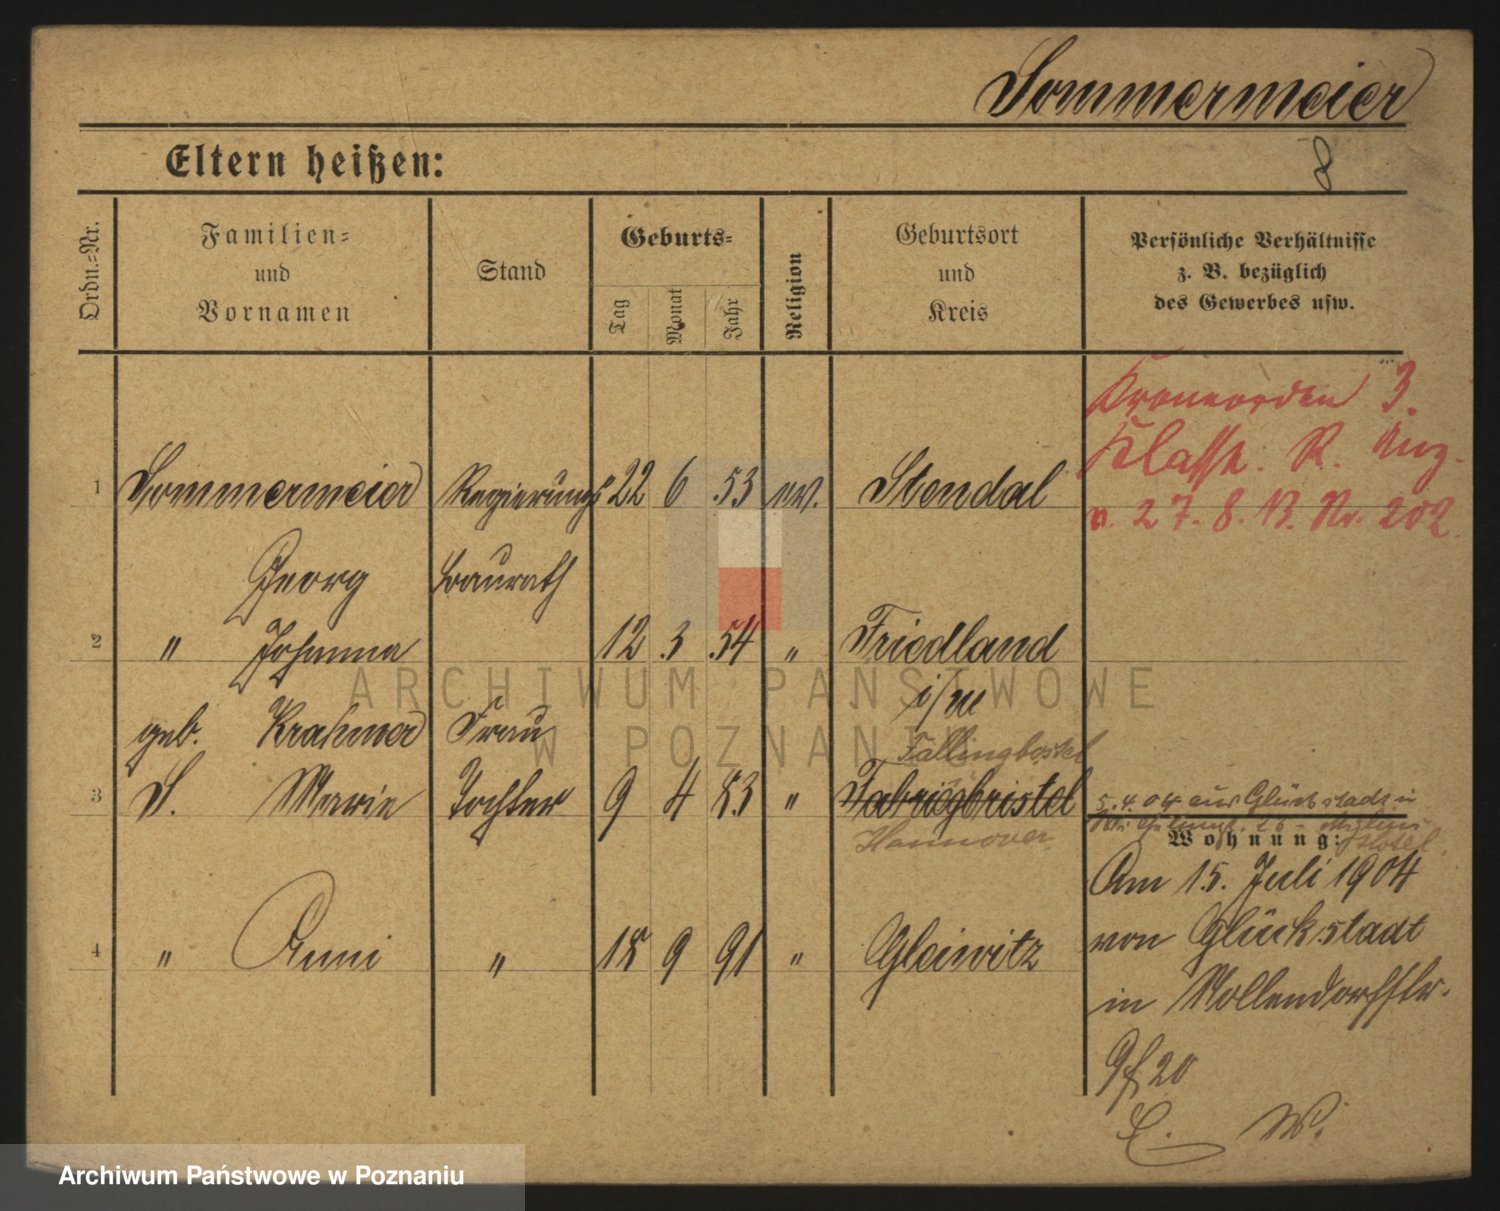 Sommermeier
Eltern heißen:
8
Ordn.=Nr.
Familien=
und
Vornamen
Stand
Geburts=
Tag
Monat
Jahr
Religion
Geburtsort
und
Kreis
Persönliche Verhältnisse
z. B. bezüglich
des Gewerbes usw.
Kronenorden 3.
Klasse. R. Anz.
v. 27. 8. 13. Nr. 202.
1 Sommermeier Regierungs 22 6 53 ev. Stendal
Georg Baurath
2 " Johanna 12 3 54 " Friedland
i/M
geb. Krahmer Frau
Fallingbostel
3 S. Marie Tochter 9 4 83 "
Hannover
5.4.04 aus Glückstadt in
Wohnung:
Hotel
Am 15. Juli 1904
von Glückstadt
4 " Anni " 18 9 91 " Gleiwitz
in Mollendorffstr.
20
W.
ARCHIWUM PAŃSTWOWE
W POZNANIU
Archiwum Państwowe w Poznaniu